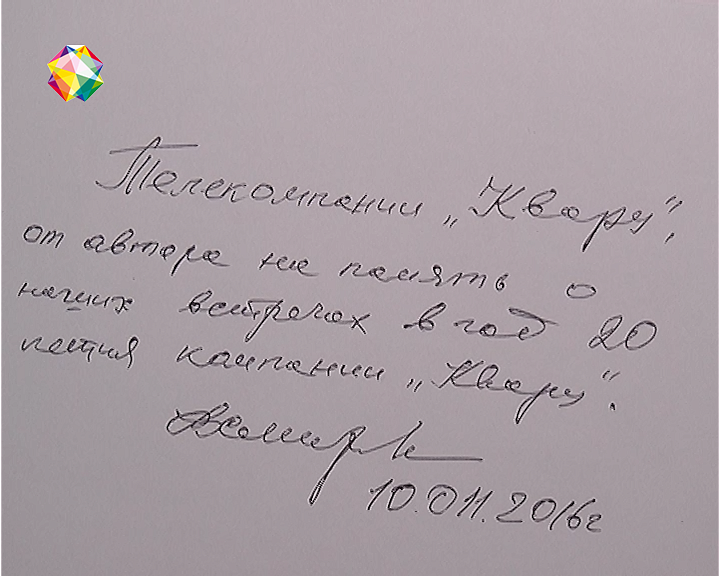 Телекомпании „Кварц“,
от автора на память о
наших встречах в год 20
летия компании „Кварц“.
10.011.2016г